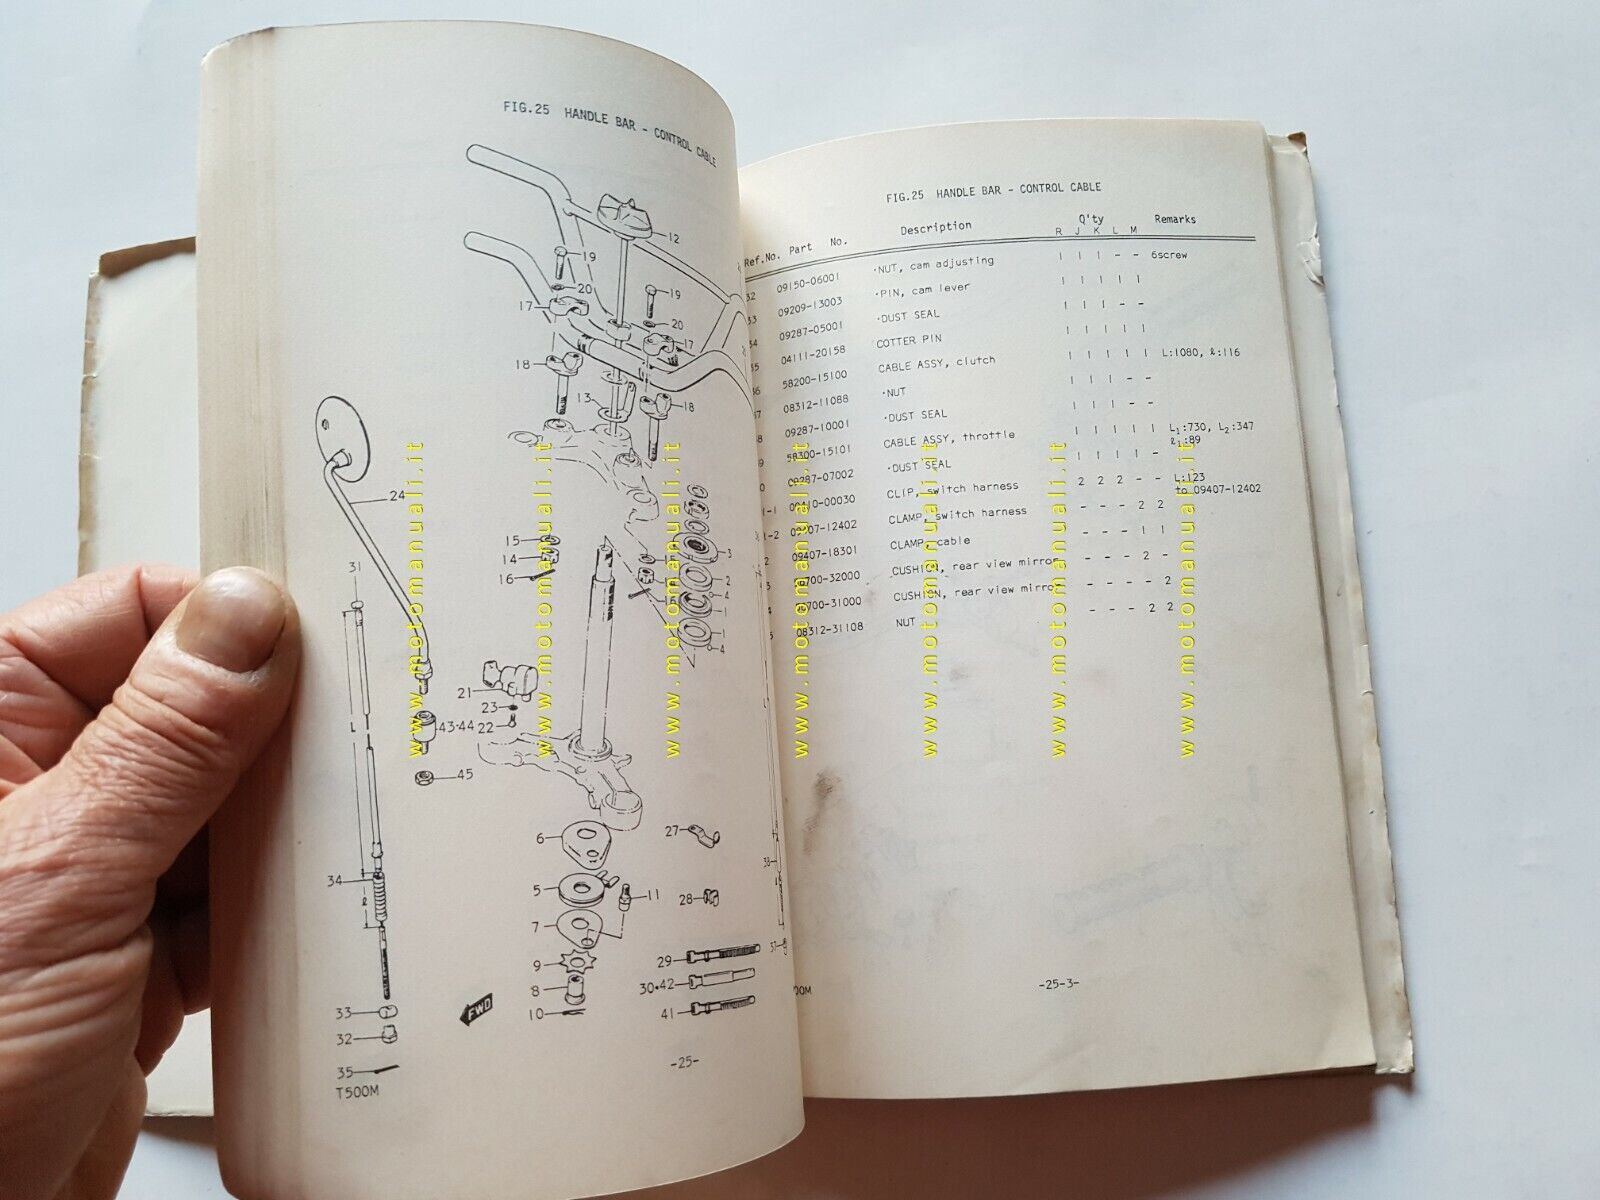 FIG.25 HANDLE BAR - CONTROL CABLE
12
19
20
19
17
20
17
18
13
18
24
15
14
16
3
2
4
1
1
4
31
L
21
23
43·44 22
45
6
27
5
11
28
7
34
ℓ
9
29
8
30·42
10
41
33
32
35
FWD
T500M
-25-
38
37
FIG.25 HANDLE BAR - CONTROL CABLE
Ref.No. Part No. Description Q'ty Remarks
R J K L M
32 09150-06001 ·NUT, cam adjusting 1 1 1 - - 6screw
33 09209-13003 ·PIN, cam lever 1 1 1 1 1
34 09287-05001 ·DUST SEAL 1 1 1 - -
35 04111-20158 COTTER PIN 1 1 1 1 1
36 58200-15100 CABLE ASSY, clutch 1 1 1 1 1 L:1080, ℓ:116
37 08312-11088 ·NUT 1 1 1 - -
38 09287-10001 ·DUST SEAL 1 1 1 - -
39 58300-15101 CABLE ASSY, throttle 1 1 1 1 1 L₁:730, L₂:347
ℓ₁:89
0 09287-07002 ·DUST SEAL 1 1 1 1 -
1-1 09410-00030 CLIP, switch harness 2 2 2 - - L:123
to 09407-12402
1-2 09407-12402 CLAMP, switch harness - - - 2 2
09407-18301 CLAMP, cable - - - 1 1
3 00-32000 CUSHION, rear view mirror - - - 2 -
4 00-31000 CUSHION, rear view mirror - - - - 2
5 08312-31108 NUT - - - 2 2
00M
-25-3-
www.motomanuali.it
www.motomanuali.it
www.motomanuali.it
www.motomanuali.it
www.motomanuali.it
www.motomanuali.it
www.motomanuali.it